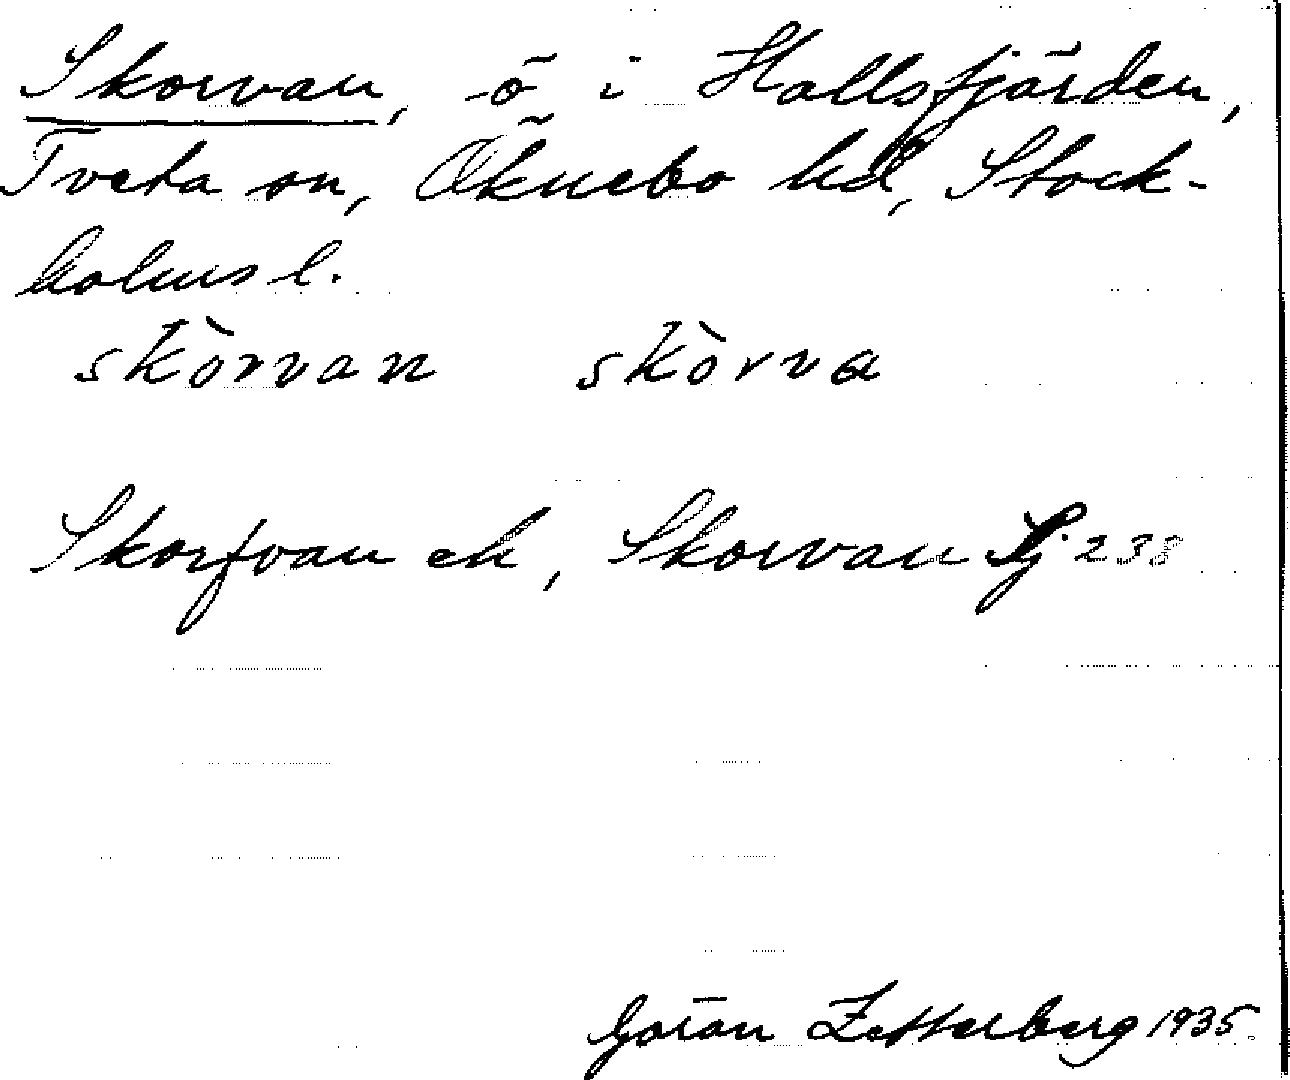 Skorvan, ö i Hallsfjärden,
Tveta sn, Öknebo hd, Stock-
holms l.
skòrvan skòrva
Skorfvan ek, Skorvan Sj 238
Göran Zetterberg 1935.